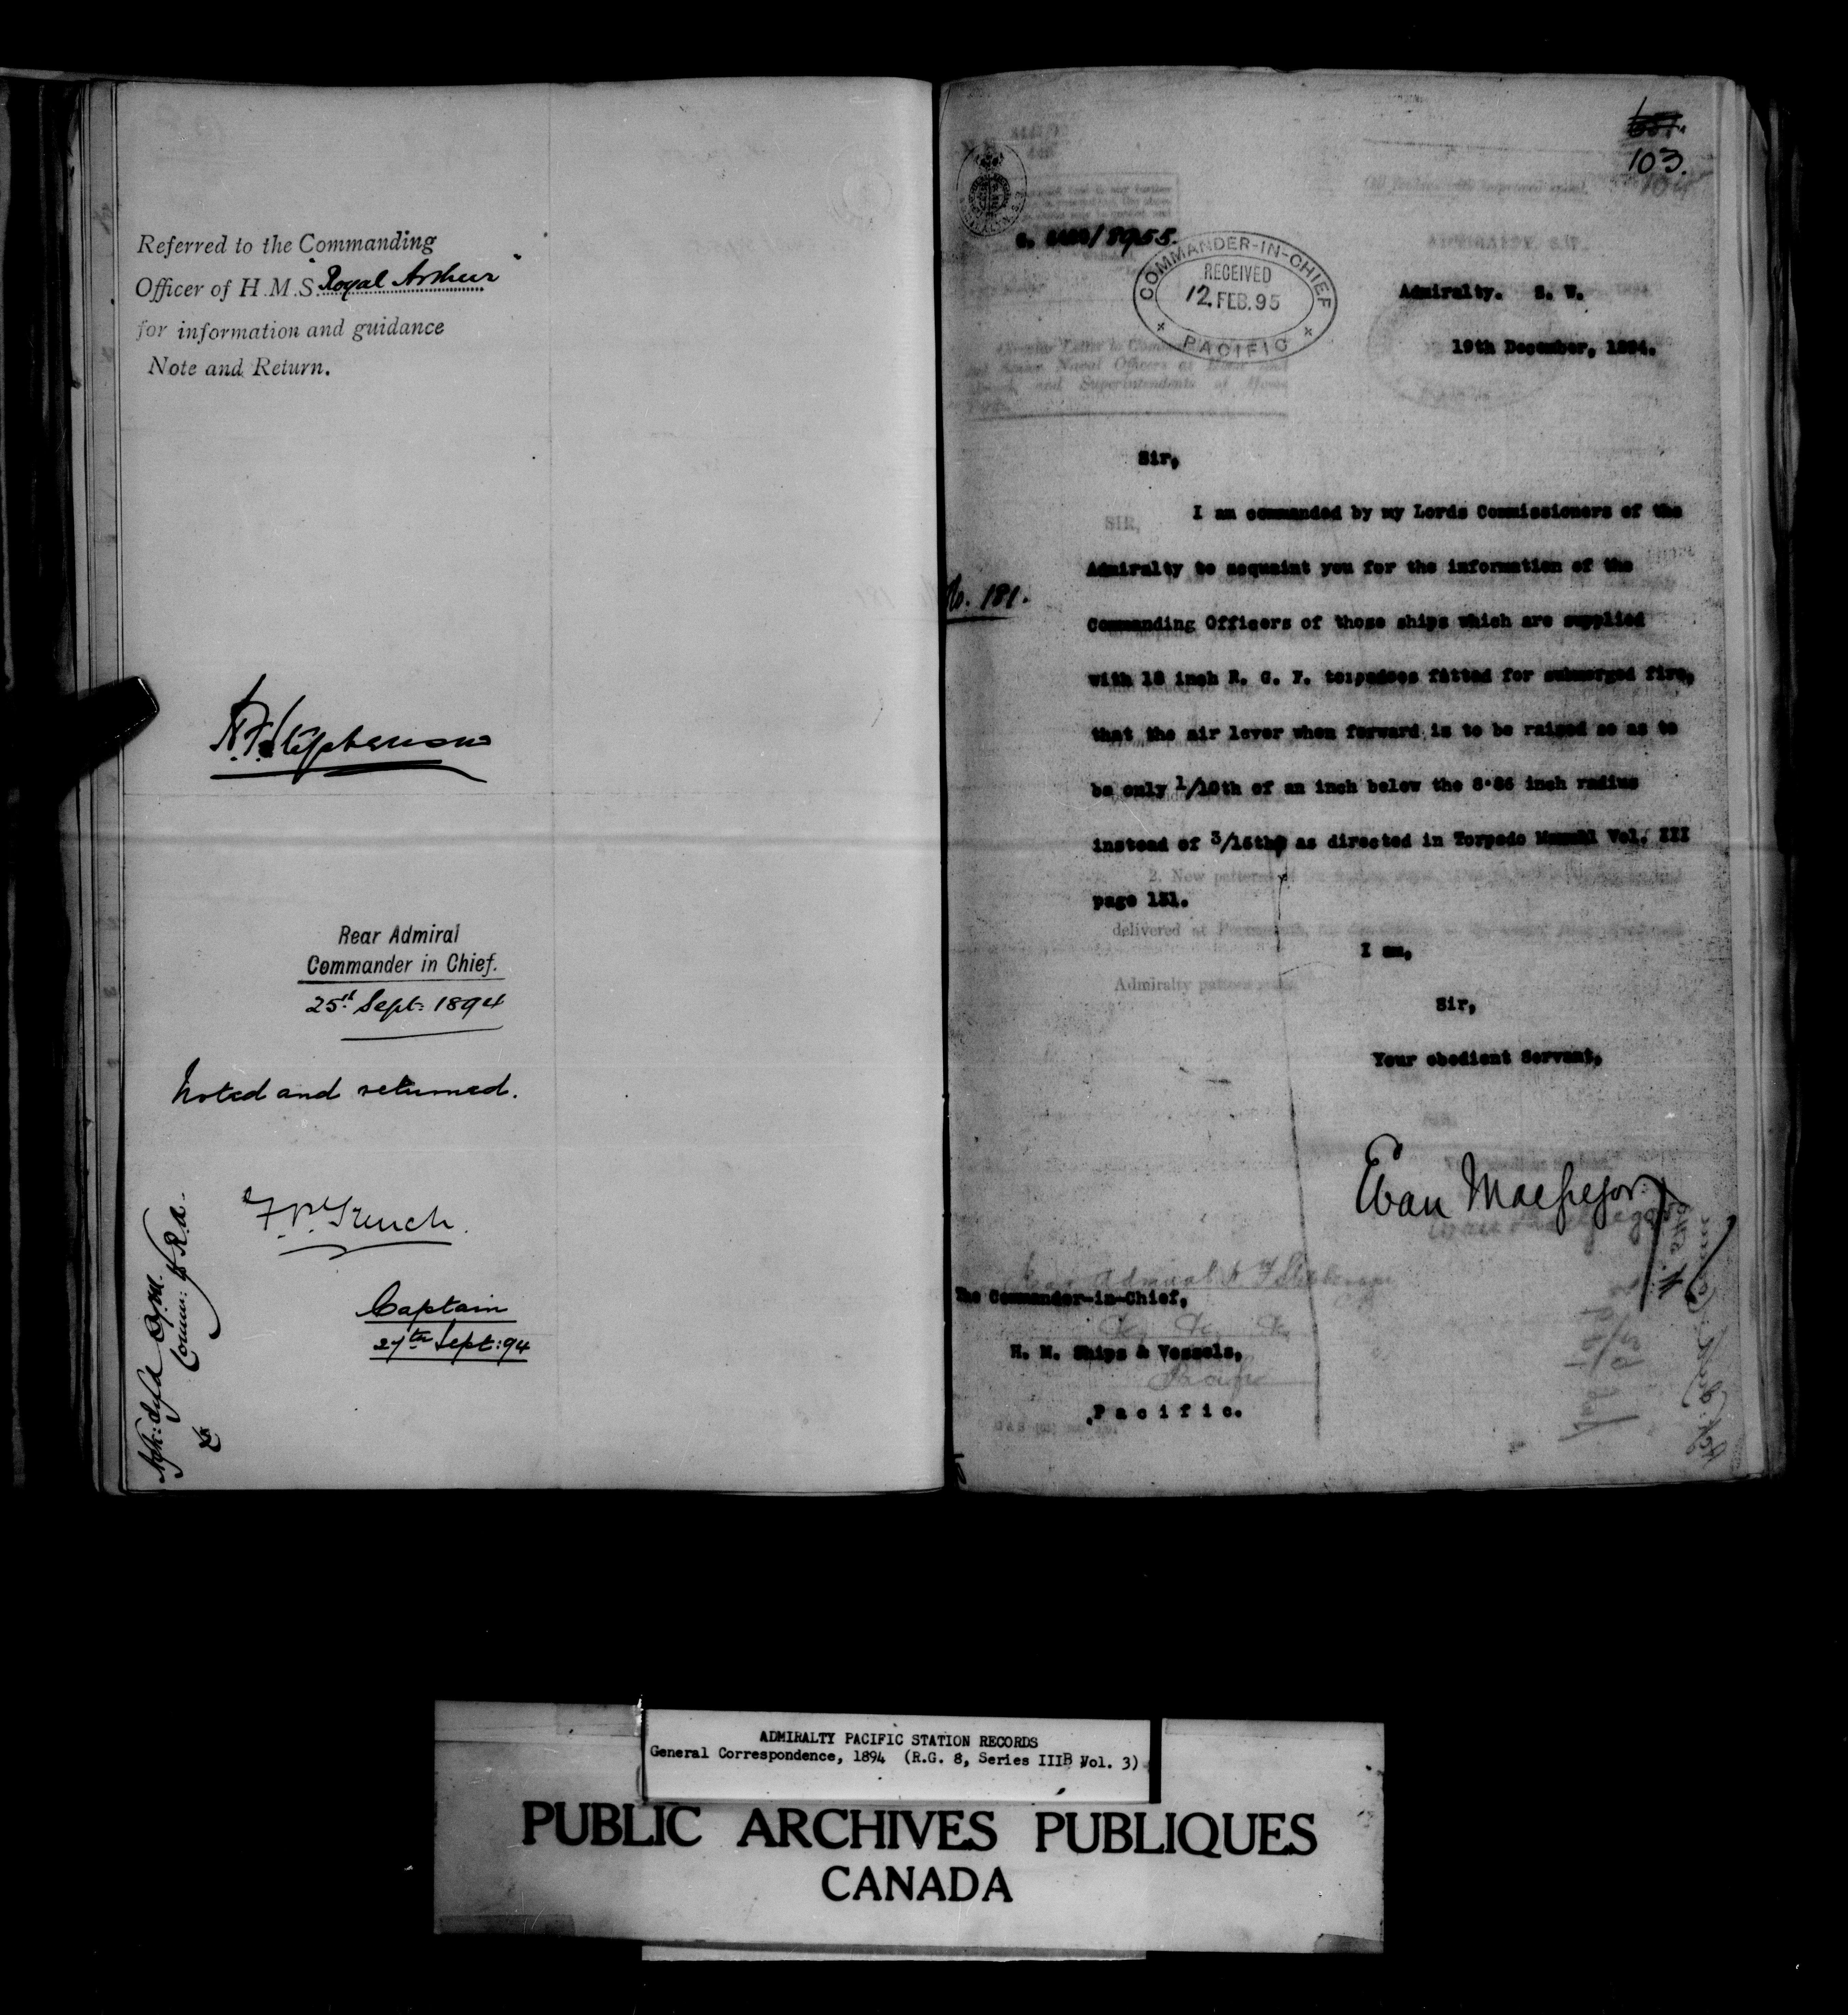 Referred to the Commanding
Officer of H.M.S. "Royal Arthur"
for information and guidance
Note and Return.
H.F. Stephenson
Rear Admiral
Commander in Chief.
25th Sept: 1894
Noted and returned.
F.P. Trench.
Captain
27th Sept: 94
103.
G. /8955.
COMMANDER-IN-CHIEF
RECEIVED
12. FEB. 95
PACIFIC
Admiralty. S. W.
19th December, 1894.
Sir,
I am commanded by my Lords Commissioners of the
Admiralty to acquaint you for the information of the
No. 181.
Commanding Officers of those ships which are supplied
with 18 inch R. G. F. torpedoes fitted for submerged fire,
that the air lever when forward is to be raised so as to
be only 1/10th of an inch below the 8.86 inch radius
instead of 3/16ths as directed in Torpedo Manual Vol. III
page 131.
I am,
Sir,
Your obedient Servant,
Evan Macgregor
The Commander-in-Chief,
H. M. Ships & Vessels,
Pacific.
ADMIRALTY PACIFIC STATION RECORDS
General Correspondence, 1894 (R.G. 8, Series IIIB Vol. 3)
PUBLIC ARCHIVES PUBLIQUES
CANADA